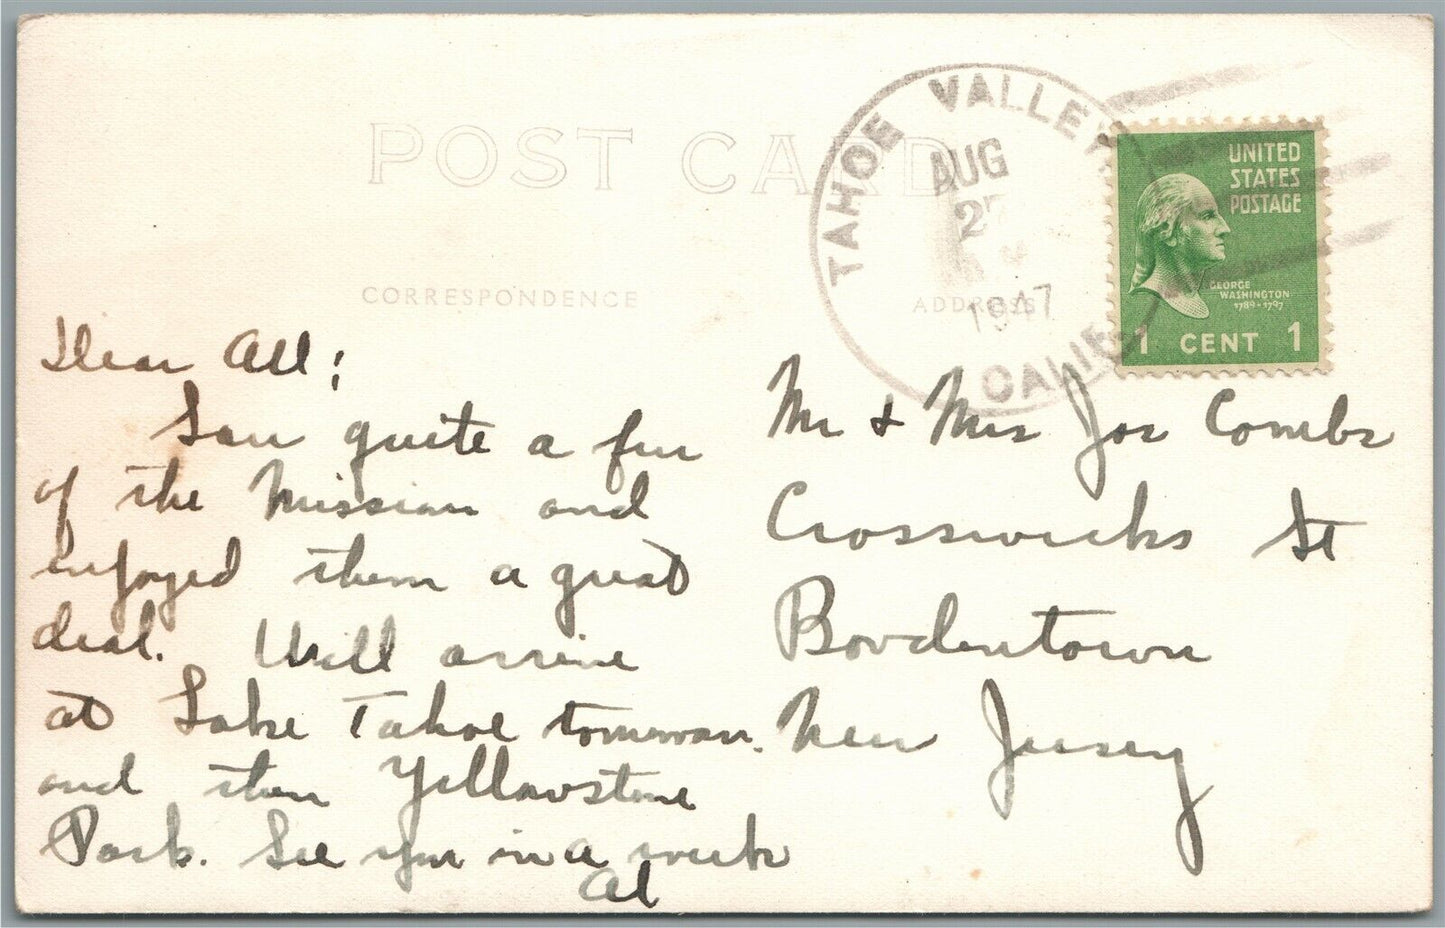 POST CARD
TAHOE VALLEY
AUG
27
1947
CALIF.
UNITED
STATES
POSTAGE
GEORGE
WASHINGTON
1789-1797
1 CENT 1
CORRESPONDENCE
ADDRESS
Dear All;
Saw quite a few
of the Missions and
enjoyed them a great
deal. Will arrive
at Lake Tahoe tomorrow.
and then Yellowstone
Park. See you in a week
Al
Mr & Mrs Jos Combs
Crosswicks St
Bordentown
New Jersey